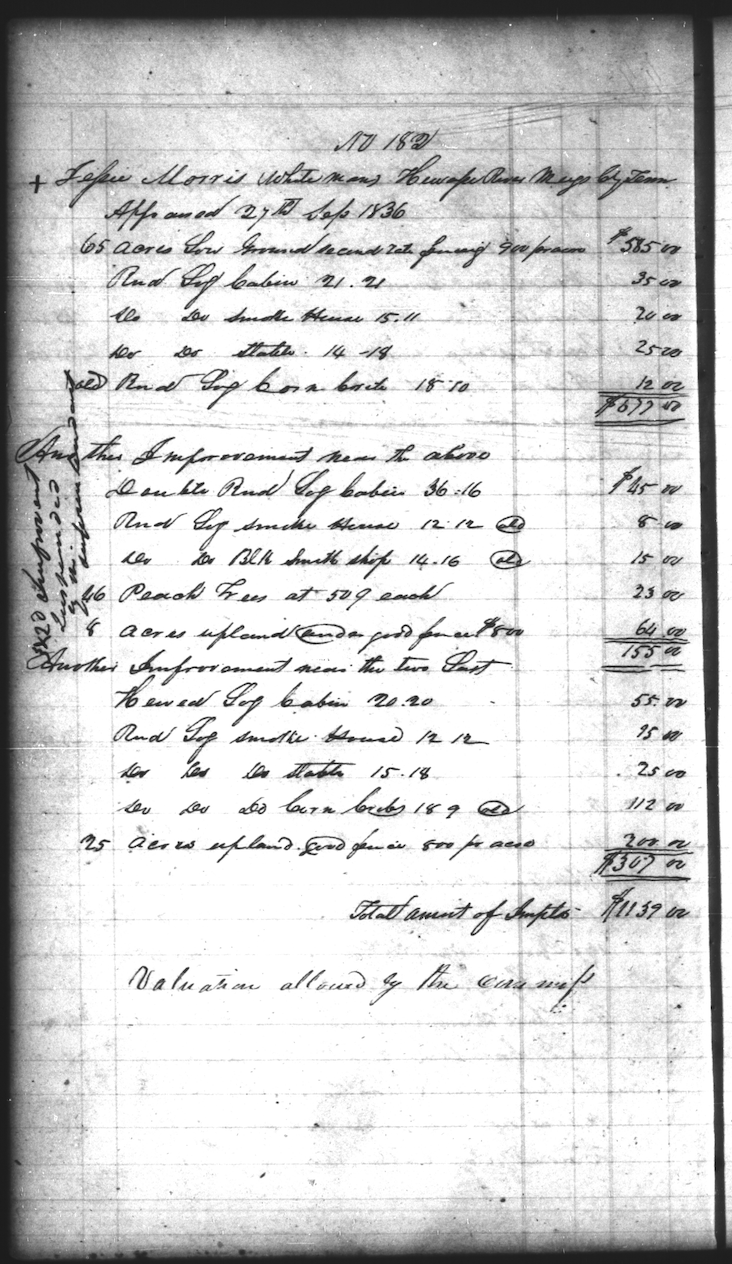 No 182
+ Jessie Morris (White man) Hiwassee River Meigs Cty Tenn
Appraised 27th Sep 1836
65 acres Low Ground second rate fencing 900 pr acre $585 00
Rnd Log Cabin 21.21 35 00
Do Do Smoke House 15.11 20 00
Do Do Stable 14-18 25 00
old Rnd Log Corn Crib 18.10 12 00
$677 00
Another Improvement near the above
Double Rnd Log Cabin 36.16 $45 00
Rnd Log Smoke House 12.12 old 8 00
Do Do Blk Smith Shop 14.16 old 15 00
46 Peach Trees at 50¢ each 23 00
8 acres upland under good fence $800 64 00
155 00
Another Improvement near the two Last
Hewed Log Cabin 20.20 55.00
Rnd Log Smoke House 12 12 15 00
Do Do Do Stable 15.18 25 00
Do Do Do Corn Cribs 18 9 old 112 00
25 acres upland good fence 800 pr acre 200 00
$307 00
Total amnt of Impts $1139 00
Valuation allowed by the commiss